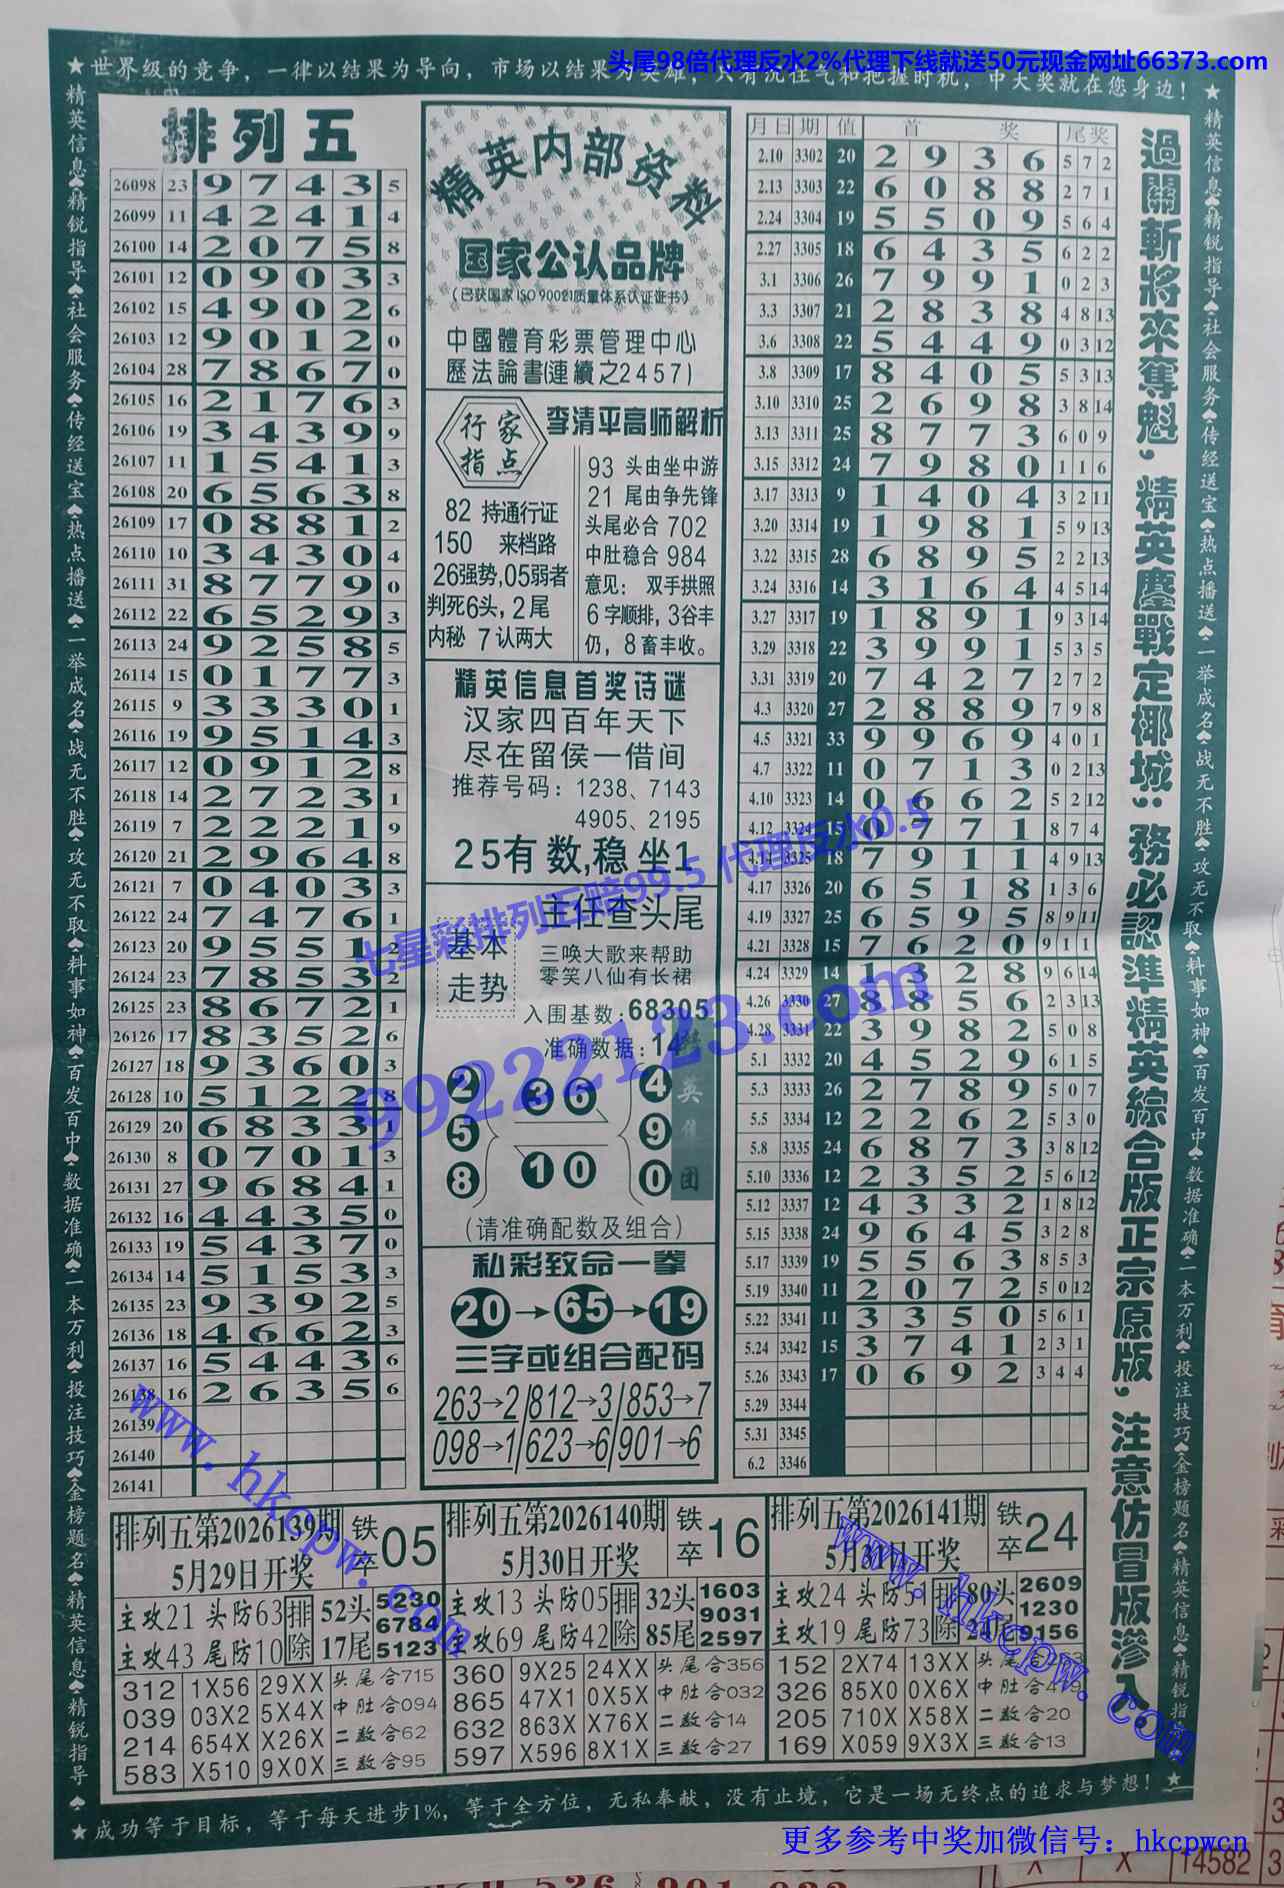 头尾98倍代理反水2%代理下线就送50元现金网址66373.com
★世界级的竞争，一律以结果为导向，市场以结果为英雄，只有沉住气和把握时机，中大奖就在您身边！★
精英信息♠精锐指导♠社会服务♠传经送宝♠热点播送♠一举成名♠战无不胜♠攻无不取♠料事如神♠百发百中♠数据准确♠一本万利♠投注技巧♠金榜题名♠精英信息♠精锐指导♠
排列五
26098 23 9 7 4 3 5
26099 11 4 2 4 1 4
26100 14 2 0 7 5 8
26101 12 0 9 0 3 3
26102 15 4 9 0 2 6
26103 12 9 0 1 2 0
26104 28 7 8 6 7 0
26105 16 2 1 7 6 3
26106 19 3 4 3 9 9
26107 11 1 5 4 1 3
26108 20 6 5 6 3 8
26109 17 0 8 8 1 2
26110 10 3 4 3 0 4
26111 31 8 7 7 9 0
26112 22 6 5 2 9 3
26113 24 9 2 5 8 5
26114 15 0 1 7 7 3
26115 9 3 3 3 0 1
26116 19 9 5 1 4 3
26117 12 0 9 1 2 8
26118 14 2 7 2 3 1
26119 7 2 2 2 1 9
26120 21 2 9 6 4 8
26121 7 0 4 0 3 3
26122 24 7 4 7 6 1
26123 20 9 5 5 1 2
26124 23 7 8 5 3 2
26125 23 8 6 7 2 1
26126 17 8 3 5 2 6
26127 18 9 3 6 0 3
26128 10 5 1 2 2 8
26129 20 6 8 3 3 1
26130 8 0 7 0 1 3
26131 27 9 6 8 4 1
26132 16 4 4 3 5 0
26133 19 5 4 3 7 0
26134 14 5 1 5 3 3
26135 23 9 3 9 2 5
26136 18 4 6 6 2 3
26137 16 5 4 4 3 6
26138 16 2 6 3 5 6
26139
26140
26141
精英内部资料
国家公认品牌
(已获国家ISO90021质量体系认证证书)
中國體育彩票管理中心
歷法論書(連續之2457)
行家指点
82 持通行证
150 来档路
26强势,05弱者
判死6头,2尾
内秘 7认两大
李清平高师解析
93 头由坐中游
21 尾由争先锋
头尾必合 702
中肚稳合 984
意见： 双手拱照
6字顺排,3谷丰
仍，8畜丰收。
精英信息首奖诗谜
汉家四百年天下
尽在留侯一借间
推荐号码：1238、7143
4905、2195
25有数,稳坐1
基本走势
主任查头尾
三唤大歌来帮助
零笑八仙有长裙
入围基数:68305
准确数据:14
2 5 8
3 6
1 0
4 9 0
英
团
(请准确配数及组合)
私彩致命一拳
20→65→19
三字或组合配码
263→2/812→3/853→7
098→1/623→6/901→6
月日 期 值 首奖 尾奖
2.10 3302 20 2 9 3 6 5 7 2
2.13 3303 22 6 0 8 8 2 7 1
2.24 3304 19 5 5 0 9 5 6 4
2.27 3305 18 6 4 3 5 6 2 2
3.1 3306 26 7 9 9 1 0 2 3
3.3 3307 21 2 8 3 8 4 8 13
3.6 3308 22 5 4 4 9 0 3 12
3.8 3309 17 8 4 0 5 5 3 13
3.10 3310 25 2 6 9 8 3 8 14
3.13 3311 25 8 7 7 3 6 0 9
3.15 3312 24 7 9 8 0 1 1 6
3.17 3313 9 1 4 0 4 3 2 11
3.20 3314 19 1 9 8 1 5 9 13
3.22 3315 28 6 8 9 5 2 2 13
3.24 3316 14 3 1 6 4 4 5 14
3.27 3317 19 1 8 9 1 9 3 14
3.29 3318 22 3 9 9 1 5 3 5
3.31 3319 20 7 4 2 7 2 7 2
4.3 3320 27 2 8 8 9 7 9 8
4.5 3321 33 9 9 6 9 4 0 1
4.7 3322 11 0 7 1 3 0 2 13
4.10 3323 14 0 6 6 2 5 2 12
4.12 3324 15 0 7 7 1 8 7 4
4.14 3325 18 7 9 1 1 4 9 13
4.17 3326 20 6 5 1 8 1 3 6
4.19 3327 25 6 5 9 5 8 9 11
4.21 3328 15 7 6 2 0 9 1 1
4.24 3329 14 1 3 2 8 9 6 14
4.26 3330 27 8 8 5 6 2 3 13
4.28 3331 22 3 9 8 2 5 0 8
5.1 3332 20 4 5 2 9 6 1 5
5.3 3333 26 2 7 8 9 5 0 7
5.5 3334 12 2 2 6 2 5 3 0
5.8 3335 24 6 8 7 3 3 8 12
5.10 3336 12 2 3 5 2 5 6 12
5.12 3337 12 4 3 3 2 1 8 12
5.15 3338 24 9 6 4 5 3 2 8
5.17 3339 19 5 5 6 3 8 5 3
5.19 3340 11 2 0 7 2 5 0 12
5.22 3341 11 3 3 5 0 5 6 1
5.24 3342 15 3 7 4 1 2 3 1
5.26 3343 17 0 6 9 2 3 4 4
5.29 3344
5.31 3345
6.2 3346
過關斬將來奪魁，精英鏖戰定椰城；務必認準精英綜合版正宗原版，注意仿冒版滲入。
精英信息♠精锐指导♠社会服务♠传经送宝♠热点播送♠一举成名♠战无不胜♠攻无不取♠料事如神♠百发百中♠数据准确♠一本万利♠投注技巧♠金榜题名♠精英信息♠精锐指
排列五第2026139期
5月29日开奖
铁卒05
主攻21 头防63
主攻43 尾防10
排除 52头 17尾
5230
6784
5123
312 1X56 29XX 头尾合715
039 03X2 5X4X 中肚合094
214 654X X26X 二数合62
583 X510 9X0X 三数合95
排列五第2026140期
5月30日开奖
铁卒16
主攻13 头防05
主攻69 尾防42
排除 32头 85尾
1603
9031
2597
360 9X25 24XX 头尾合356
865 47X1 0X5X 中肚合032
632 863X X76X 二数合14
597 X596 8X1X 三数合27
排列五第2026141期
5月31日开奖
铁卒24
主攻24 头防5
主攻19 尾防73
排除 80头 24尾
2609
1230
9156
152 2X74 13XX 头尾
326 85X0 0X6X 中肚合
205 710X X58X 二数合20
169 X059 9X3X 三数合13
★成功等于目标，等于每天进步1%，等于全方位，无私奉献，没有止境，它是一场无终点的追求与梦想！★
七星彩排列五赔99.5 代理反水0.5
99222123.com
www.hkcpw.com
www.hkcpw.com
更多参考中奖加微信号：hkcpwcn
X X 14582